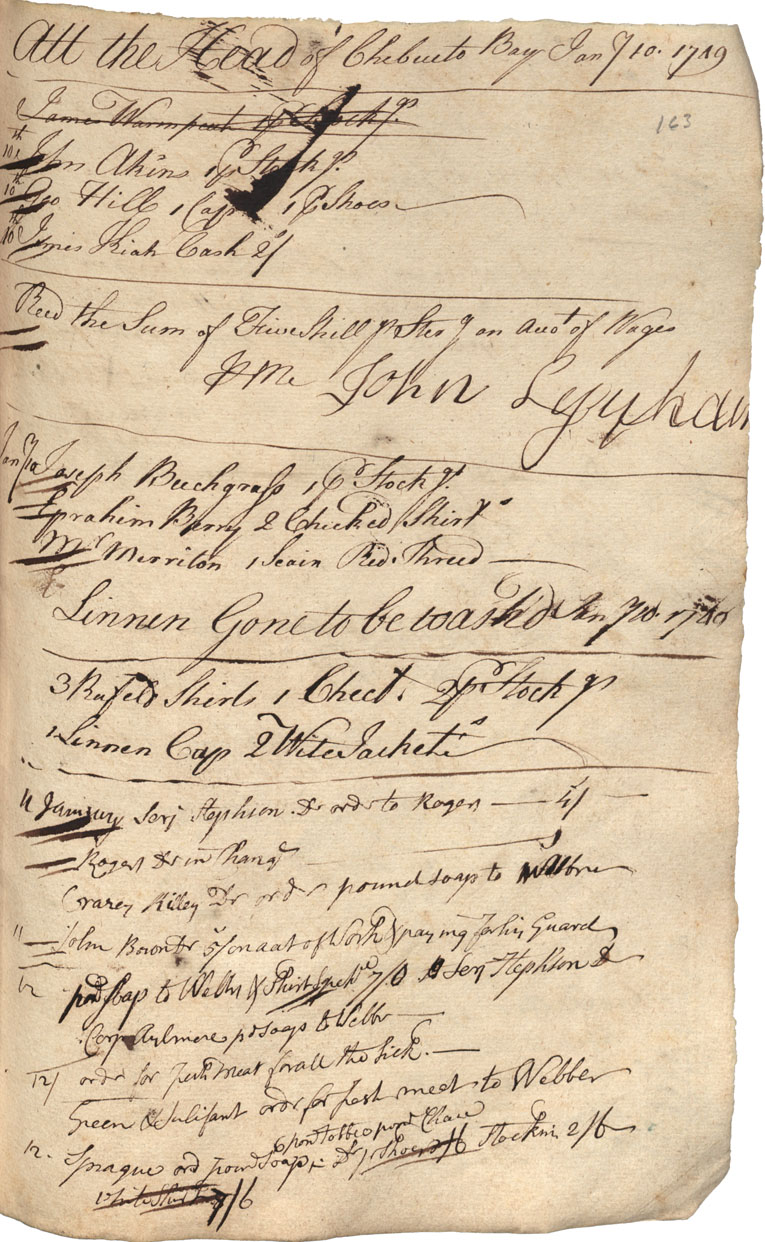 Att the Head of Chebucto Bay Jan 7 10. 1749
163
James Warmpeek 1 pr Stockgs
10th Jon Akins 1 pr Stockgs
10th Geo Hill 1 Cap 1 pr Shoes
10th James Kiah Cash 2/
Recd the Sum of Five Shill p Ster on Acct of Wages
p Me John
Jan 10 Joseph Beechgrass 1 pr Stockgs
Ephrahim Berry 2 Checked Shirts
Mr Merriton 1 Scain Red Thred
Linnen Gone to be wash'd Jan 7 10. 1749
3 Rufeld Shirts 1 Chect. 2 pr Stockgs
1 Linnen Cap 2 Wite Jackets
11 January Serj Stephson Dr order to Rogers 5/
Rogers Dr in
Crazey Killey Dr order pound soap to
11 John Bown Dr 5/ on aat of Work & paying for his Guard
12 pond soap to Webbr & Shirt 7/0 Serj Stephson Dr
Corp Aylmore pd soap to Webbr
12/ order for fresh meat for all the Sick.
Green & Sulifant order for fresh meet to Webber
pond tobbco pond Chase
12. Sprague ord pound soap Dr Shoes /6 Stockin 2/6
white Shirt 7/6